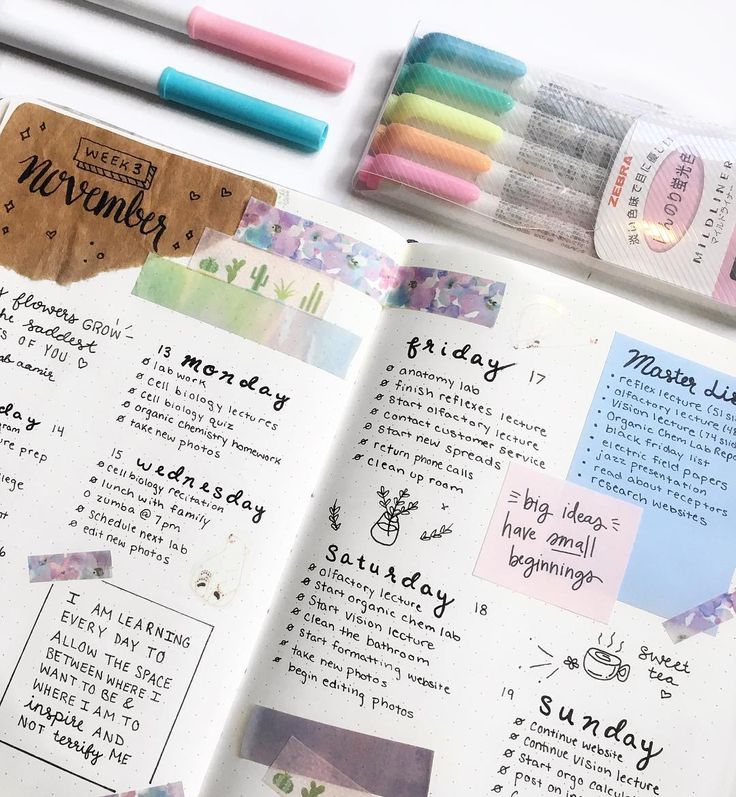 WEEK 3
november
flowers GROW
saddest
OF YOU
13 monday
lab work
cell biology lectures
cell biology quiz
organic chemistry homework
take new photos
14
prep
15 wednesday
cell biology recitation
lunch with family
zumba @ 7pm
schedule next lab
edit new photos
I AM LEARNING
EVERY DAY TO
ALLOW THE SPACE
BETWEEN WHERE I
WANT TO BE &
WHERE I AM TO
inspire AND
NOT terrify ME
friday 17
anatomy lab
finish reflexes lecture
start olfactory lecture
contact customer service
start new spreads
return phone calls
clean up room
saturday 18
olfactory lecture
start organic chem lab
start vision lecture
clean the bathroom
start formatting website
take new photos
begin editing photos
Master Lis
reflex lecture (51 sli
olfactory lecture (48
vision lecture (74 slid
Organic Chem Lab Repo
black friday list
electric field papers
jazz presentation
read about receptors
research websites
big ideas
have small
beginnings
sweet
tea
19 sunday
continue website
continue vision lecture
start orgo calculat
post on in
ZEBRA
淡い色味で目に優しい
ほんのり蛍光色
MILDLINER
マイルドライナー